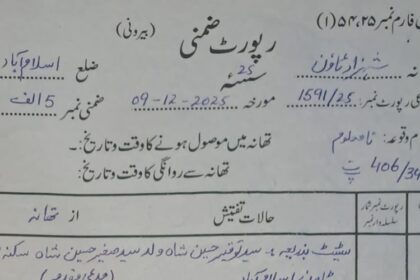 فارم نمبر ۵۴،۲۵ (۱)
رپورٹ ضمنی (بیرونی)
نہ شہزاد ٹاؤن ضلع اسلام آباد
25 سنۂ
رپورٹ نمبر: 1591/25 مورخہ 09-12-2025 ضمنی نمبر 5 الف
وقوعہ: نامعلوم تھانہ میں موصول ہونے کا وقت و تاریخ:۔
406/34 تھانہ سے روانگی کا وقت و تاریخ:
رپورٹ نمبر شمار سلسلہ وار نمبر حالات تفتیش از تھانہ
سٹیٹ بذریعہ سید توقیر حسین شاہ ولد سید صغیر حسین شاہ سکنہ